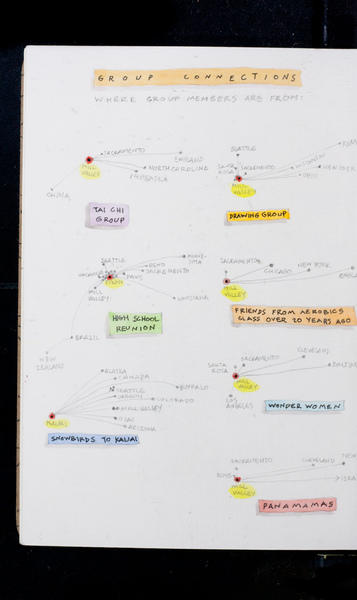 GROUP CONNECTIONS
WHERE GROUP MEMBERS ARE FROM:
SACRAMENTO
ENGLAND
MILL
VALLEY
NORTH CAROLINA
CHINA
TAI CHI
GROUP
SEATTLE
SANTA
ROSA
SACRAMENTO
WISCONSIN
OHIO
MILL
VALLEY
DRAWING GROUP
SEATTLE
BEND
SACRAMENTO
MINNE-
SOTA
MILL
VALLEY
LOUISIANA
BRAZIL
NEW
ZEALAND
HIGH SCHOOL
REUNION
SACRAMENTO
CHICAGO
NEW YORK
ENGLA
MILL
VALLEY
FRIENDS FROM AEROBICS
CLASS OVER 20 YEARS AGO
ALASKA
CANADA
SEATTLE
OREGON
BUFFALO
COLORADO
MILL VALLEY
UTAH
ARIZONA
KAUAI
SNOWBIRDS TO KAUAI
SANTA
ROSA
SACRAMENTO
CLEVELAND
MILL
VALLEY
LOS
ANGELES
WONDER WOMEN
SACRAMENTO
CLEVELAND
NEW
ISRA
MILL
VALLEY
PANAMAMAS